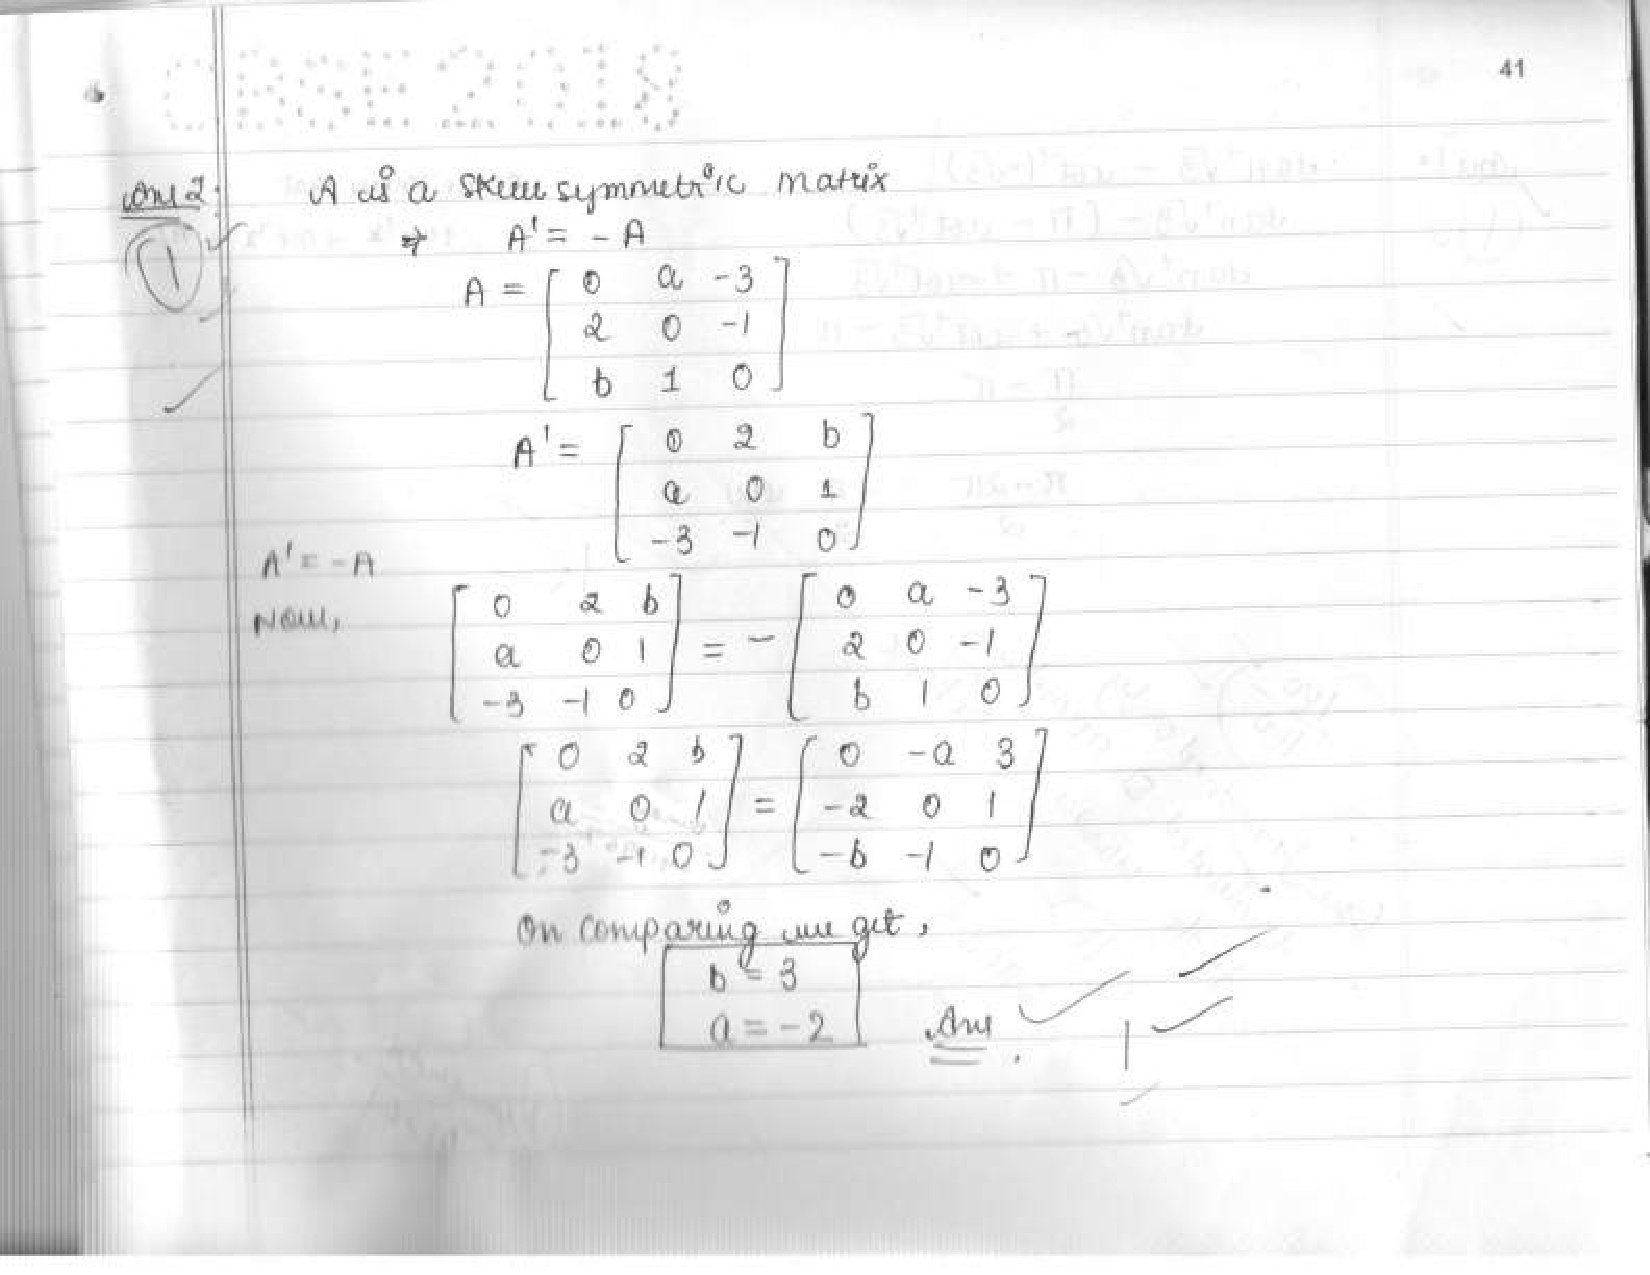 CBSE 2018
41
Ans 2:
A is a skew symmetric matrix
1
⇒ A' = - A
A = [ 0 a -3
2 0 -1
b 1 0 ]
A' = [ 0 2 b
a 0 1
-3 -1 0 ]
A' = - A
Now,
[ 0 2 b
a 0 1
-3 -1 0 ] = - [ 0 a -3
2 0 -1
b 1 0 ]
[ 0 2 b
a 0 1
-3 -1 0 ] = [ 0 -a 3
-2 0 1
-b -1 0 ]
On comparing we get,
b = 3
a = -2
Ans.
1